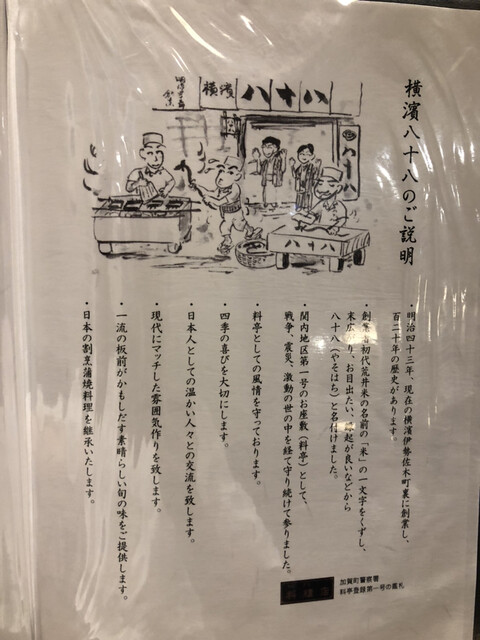 横濱八十八のご説明
横濱
八十八
八十八
八十八
・明治四十三年、現在の横濱伊勢佐木町裏に創業し、
百二十年の歴史があります。
・創業者初代荒井米の名前の「米」の一文字をくずし、
末広がり、お目出たい、縁起が良いなどから
八十八（やそはち）と名付けました。
・関内地区第一号のお座敷（料亭）として、
戦争、震災、激動の世の中を経て守り続けて参りました。
・料亭としての風情を守っております。
・四季の喜びを大切にします。
・日本人としての温かい人々との交流を致します。
・現代にマッチした雰囲気作りを致します。
・一流の板前がかもしだす素晴らしい旬の味をご提供します。
・日本の割烹蒲焼料理を継承いたします。
加賀町警察署
料亭登録第一号の鑑札